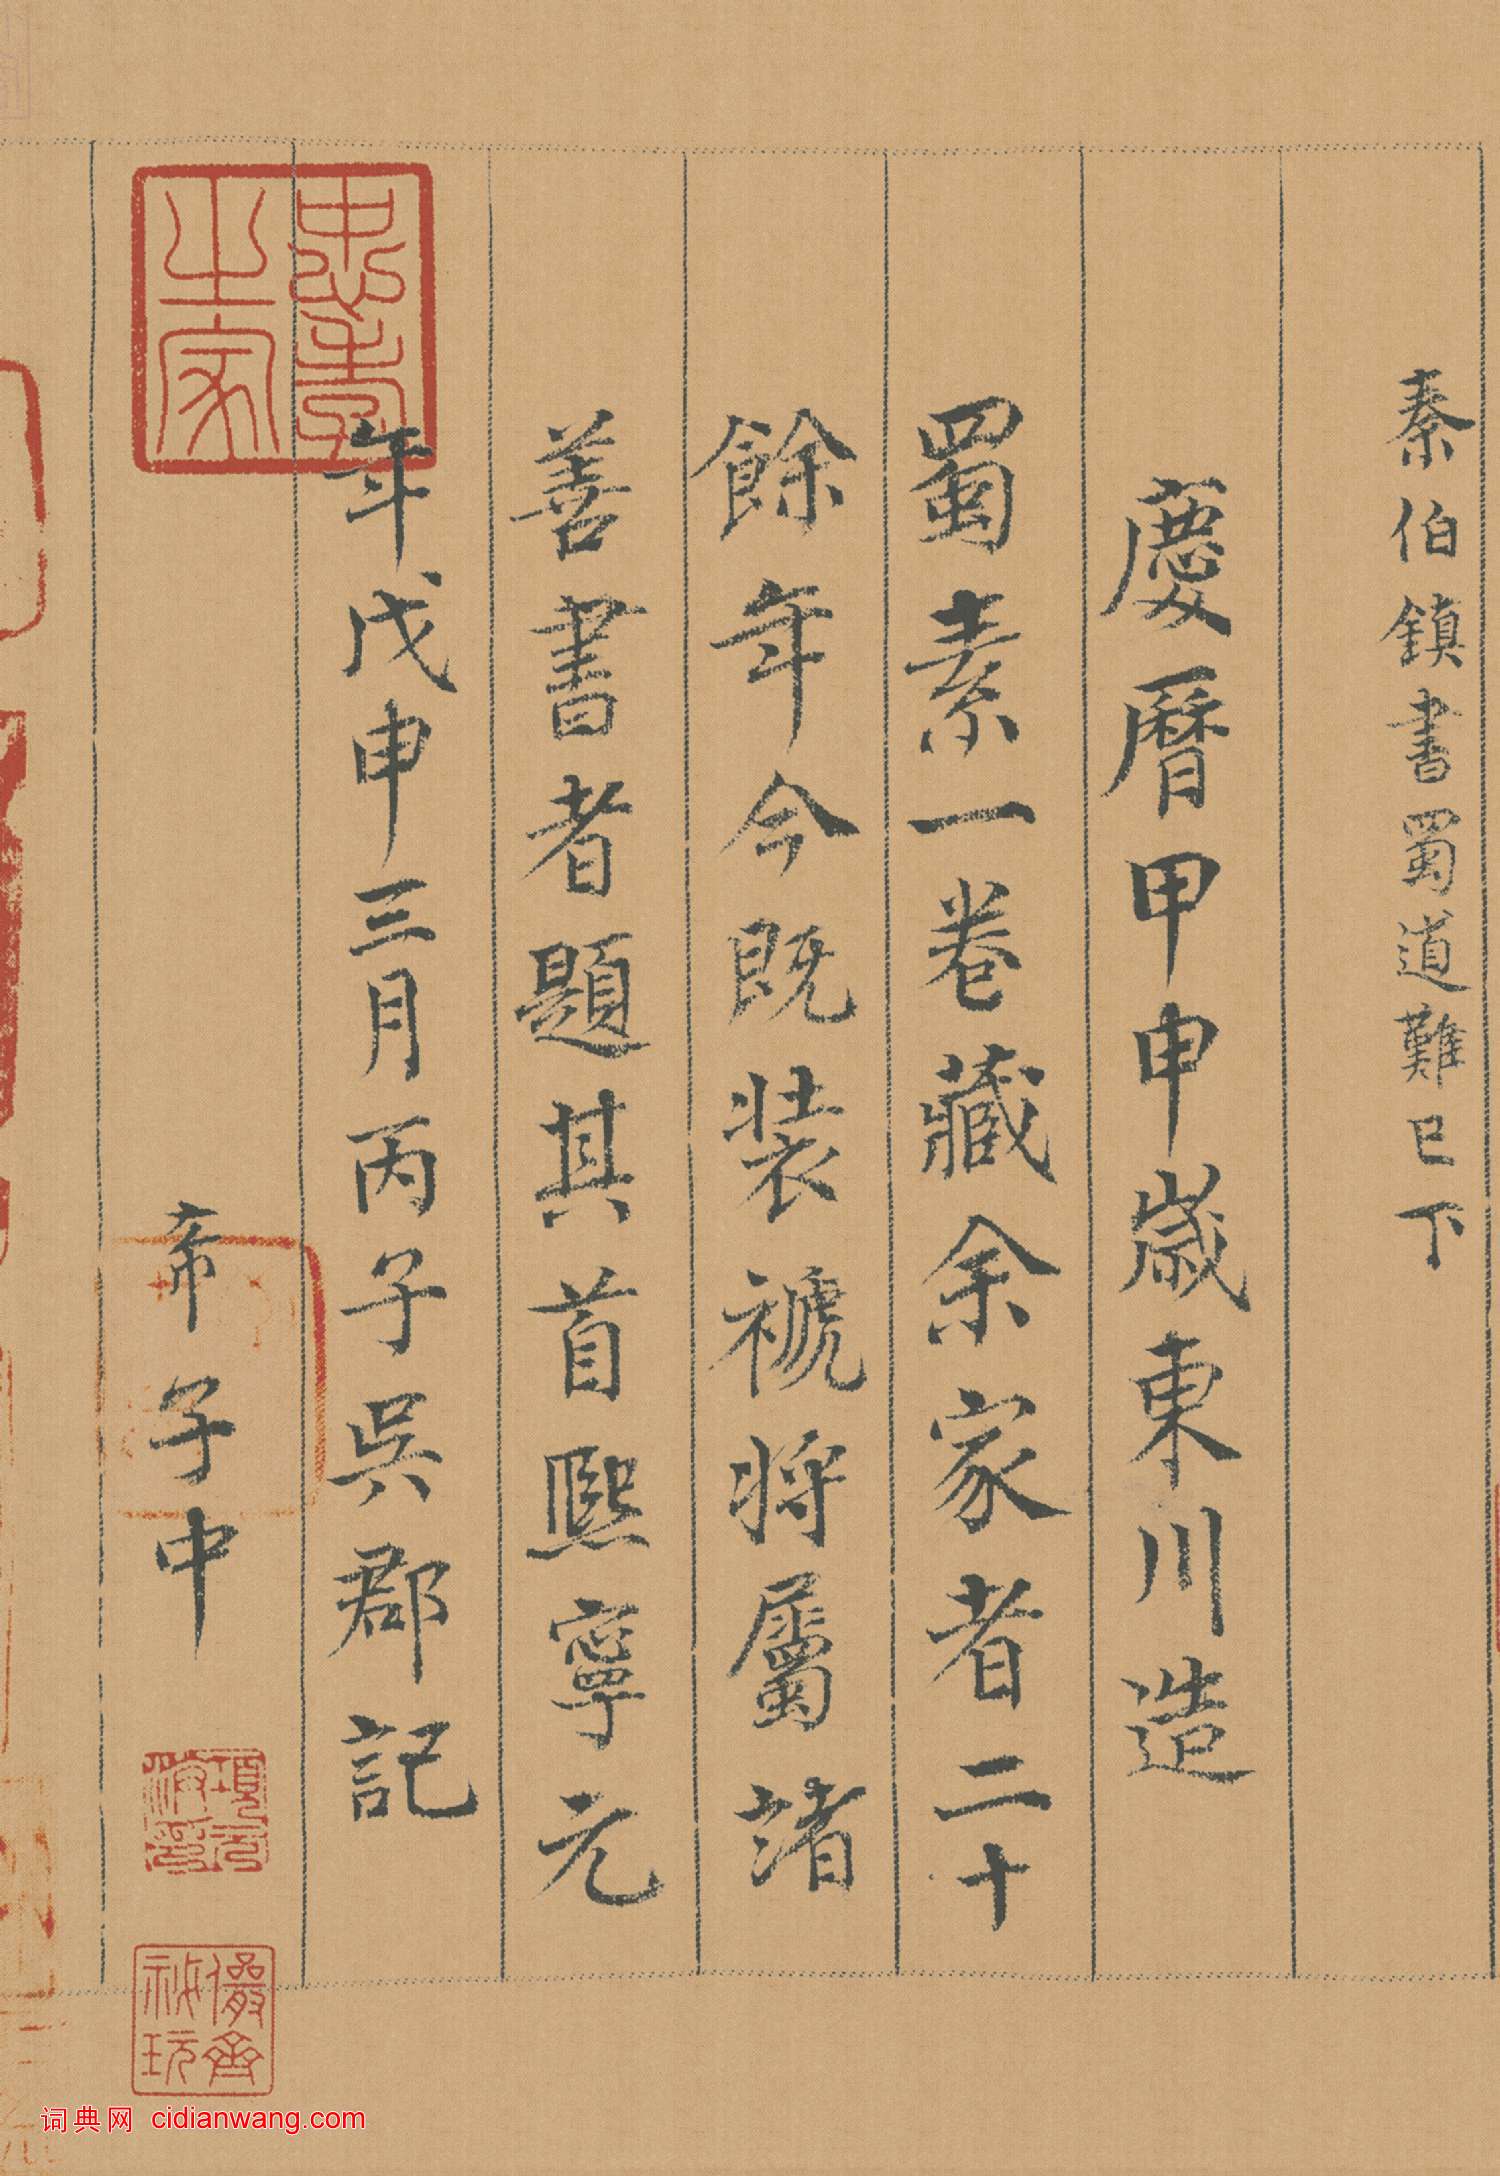 秦伯鎮書蜀道難已下
慶曆甲申歲東川造
蜀素一卷藏余家者二十
餘年今既装褫将屬諸
善書者題其首熙寧元
年戊申三月丙子吳郡記
希子中
忠孝之家
項元汴印
儼齋秘玩
词典网 cidianwang.com